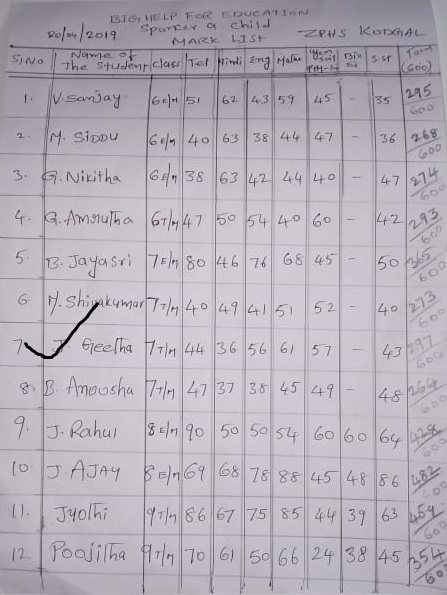 BIG HELP FOR EDUCATION
20/04/2019 Sponser a child ZPHS KODGAL
MARK LIST
S/No Name of The Student Class Tel Hindi Eng Maths Sci Bio S.st Total (600)
1. V. Sanjay 6E/M 51 62 43 59 45 - 35 295/600
2. M. SIDDU 6E/M 40 63 38 44 47 - 36 268/600
3. G. Nikitha 6E/M 38 63 42 44 40 - 47 274/600
4. G. Amrutha 6T/M 47 50 54 40 60 - 42 293/600
5. B. Jayasri 7E/M 80 46 76 68 45 - 50 365/600
6. M. Shivakumar 7T/M 40 49 41 51 52 - 40 273/600
7 J. Geetha 7T/M 44 36 56 61 57 - 43 297/600
8. B. Anoosha 7T/M 47 37 38 45 49 - 48 264/600
9. J. Rahul 8E/M 90 50 50 54 60 60 64 428/600
10. J. AJAY 8E/M 69 68 78 88 45 48 86 482/600
11. Jyothi 9T/M 86 67 75 85 44 39 63 459/600
12 Poojitha 9T/M 70 61 50 66 24 38 45 354/600